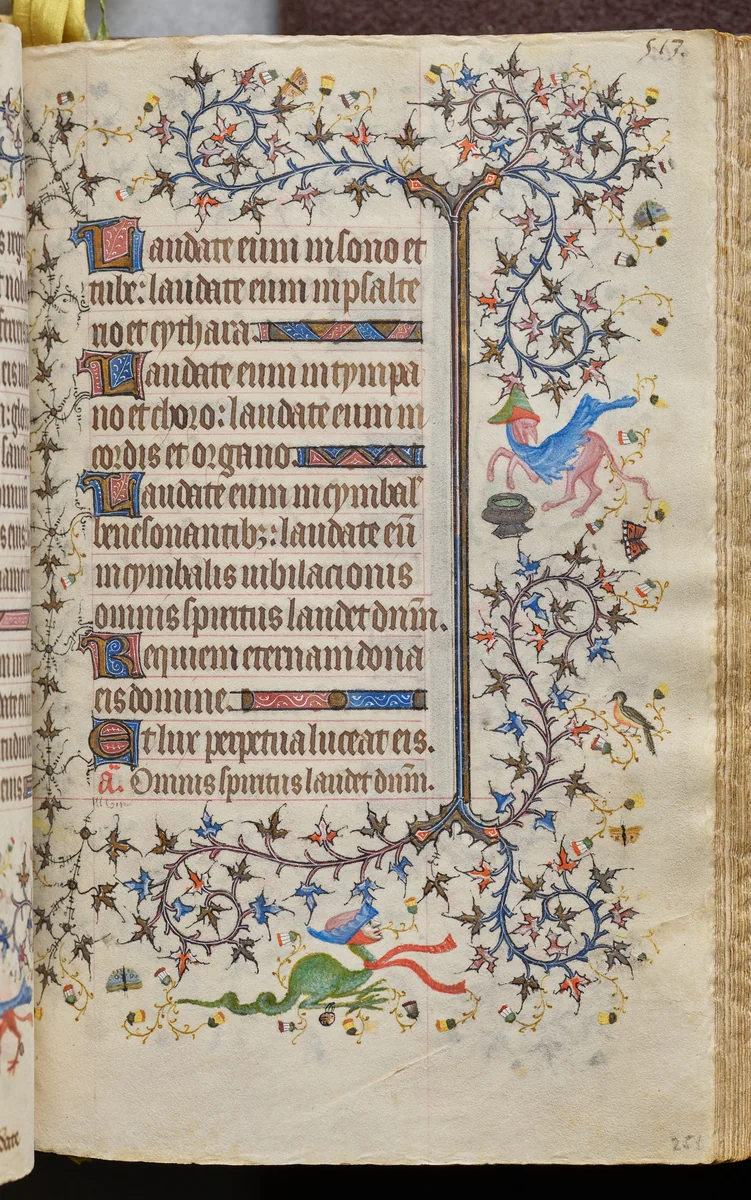 513.
Laudate eum in sono et
tube: laudate eum in psalte
rio et cythara.
Laudate eum in tympa
no et choro: laudate eum in
cordis et organo.
Laudate eum in cymbal'
benesonantibꝫ: laudate eū
in cymbalis iubilacionis
omnis spiritus laudet dnm̄.
Requiem eternam dona
eis domine.
Et lux perpetua luceat eis.
a. Omnis spiritus laudet dnm̄.